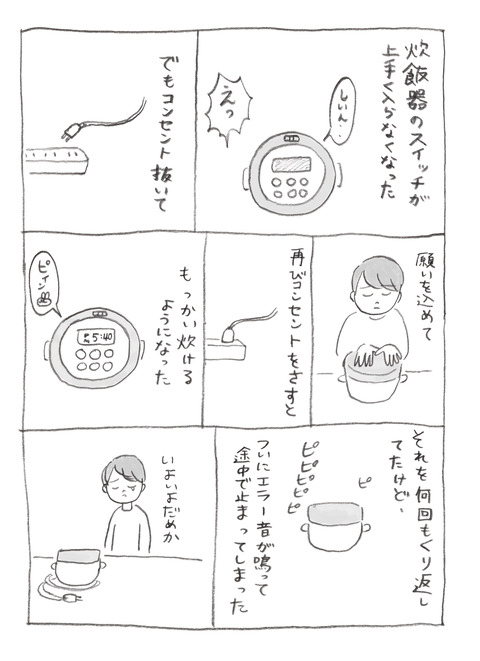 炊飯器のスイッチが
上手く入らなくなった
しぃん‥
えっ
でもコンセント抜いて
願いを込めて
再びコンセントをさすと
もっかい炊ける
ようになった
ピィン
5:40
それを何回もくり返し
てたけど、
ピ
ピピピピピ
ついにエラー音が鳴って
途中で止まってしまった
いよいよだめか